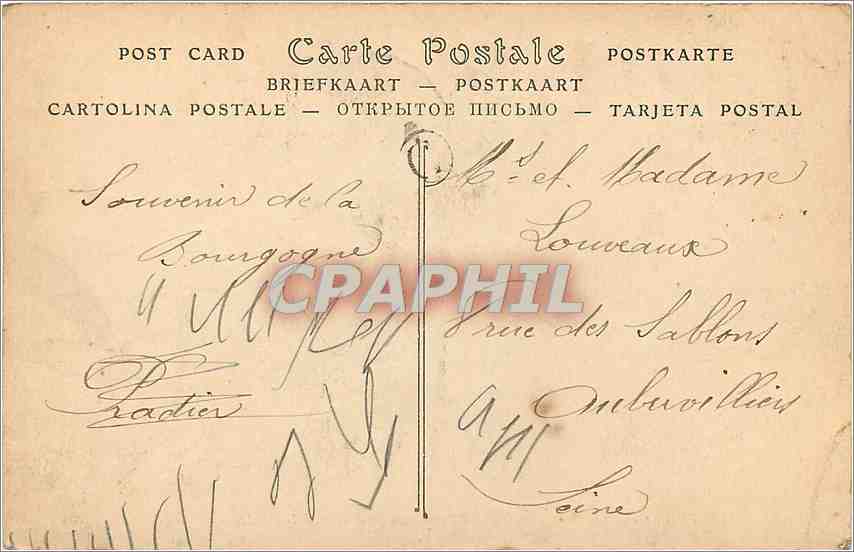 POST CARD Carte Postale POSTKARTE
BRIEFKAART — POSTKAART
CARTOLINA POSTALE — ОТКРЫТОЕ ПИСЬМО — TARJETA POSTAL
Souvenir de la
Bourgogne
Radier
Mr et Madame
Louveaux
8 rue des Sablons
Aubervilliers
Seine
CPAPHIL